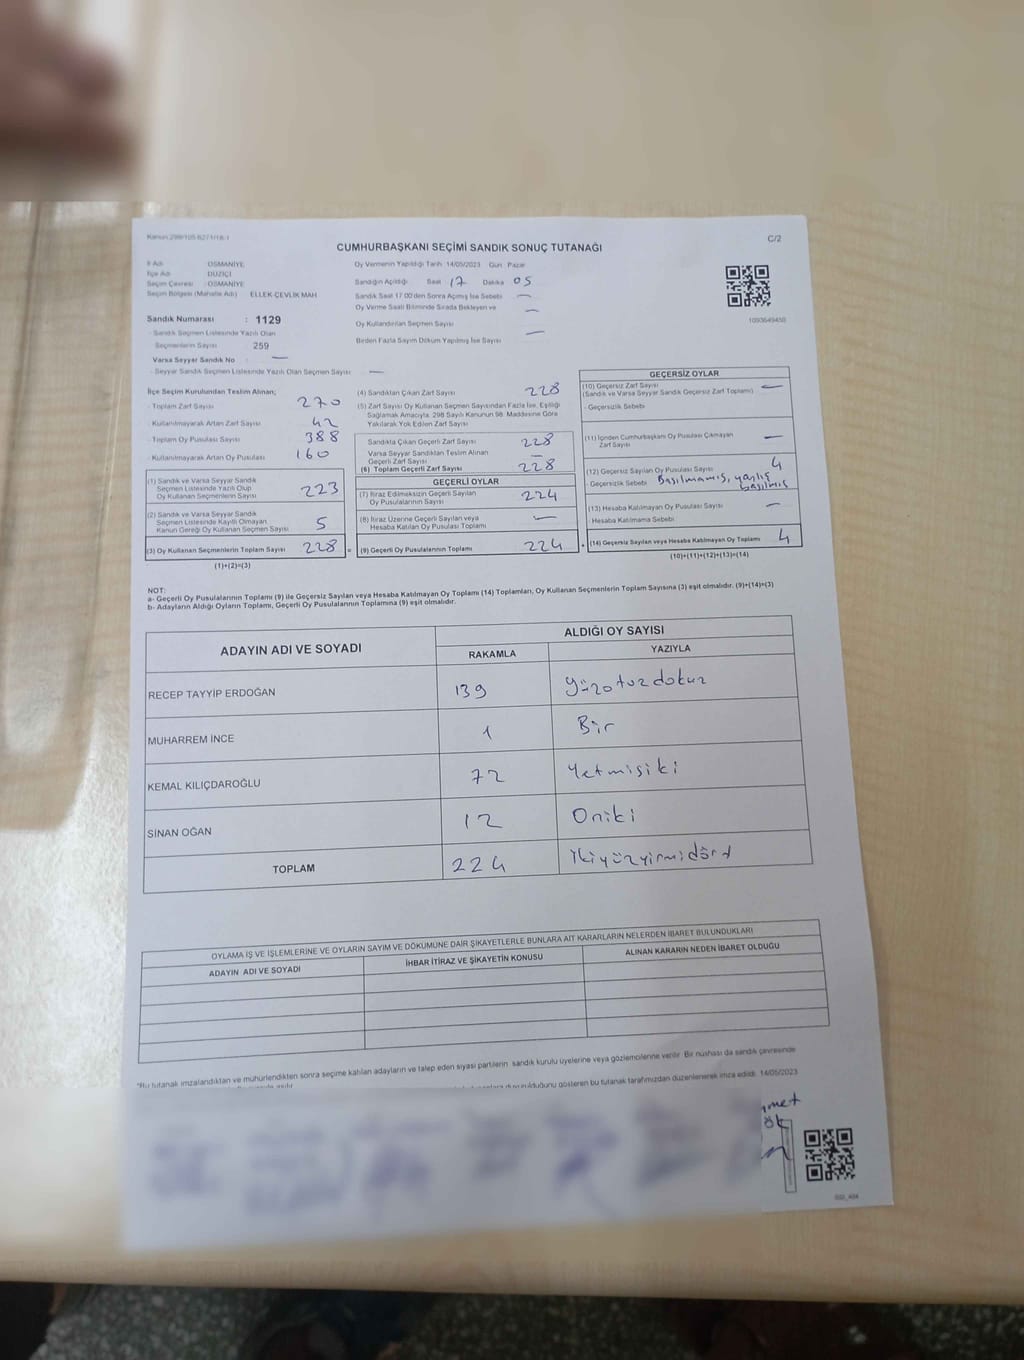 Kanun:298/105-6271/18-1
C/2
CUMHURBAŞKANI SEÇİMİ SANDIK SONUÇ TUTANAĞI
İl Adı : OSMANİYE
İlçe Adı : DÜZİÇİ
Seçim Çevresi : OSMANİYE
Seçim Bölgesi (Mahalle Adı) : ELLEK ÇEVLİK MAH
Sandık Numarası : 1129
- Sandık Seçmen Listesinde Yazılı Olan
Seçmenlerin Sayısı : 259
Varsa Seyyar Sandık No : —
- Seyyar Sandık Seçmen Listesinde Yazılı Olan Seçmen Sayısı : —
Oy Vermenin Yapıldığı Tarih: 14/05/2023 Gün: Pazar
Sandığın Açıldığı : Saat 17 Dakika 05
Sandık Saat 17:00'den Sonra Açılmış İse Sebebi —
Oy Verme Saati Bitiminde Sırada Bekleyen ve
Oy Kullandırılan Seçmen Sayısı —
Birden Fazla Sayım Döküm Yapılmış İse Sayısı —
1093649450
İlçe Seçim Kurulundan Teslim Alınan;
- Toplam Zarf Sayısı : 270
- Kullanılmayarak Artan Zarf Sayısı : 42
- Toplam Oy Pusulası Sayısı : 388
- Kullanılmayarak Artan Oy Pusulası : 160
(1) Sandık ve Varsa Seyyar Sandık
Seçmen Listesinde Yazılı Olup
Oy Kullanan Seçmenlerin Sayısı 223
(2) Sandık ve Varsa Seyyar Sandık
Seçmen Listesinde Kayıtlı Olmayan
Kanun Gereği Oy Kullanan Seçmen Sayısı 5
(3) Oy Kullanan Seçmenlerin Toplam Sayısı 228 =
(1)+(2)=(3)
(4) Sandıktan Çıkan Zarf Sayısı : 228
(5) Zarf Sayısı Oy Kullanan Seçmen Sayısından Fazla İse, Eşitliği
Sağlamak Amacıyla, 298 Sayılı Kanunun 98. Maddesine Göre
Yakılarak Yok Edilen Zarf Sayısı
Sandıkta Çıkan Geçerli Zarf Sayısı : 228
Varsa Seyyar Sandıktan Teslim Alınan
Geçerli Zarf Sayısı : —
(6) Toplam Geçerli Zarf Sayısı : 228
GEÇERLİ OYLAR
(7) İtiraz Edilmeksizin Geçerli Sayılan
Oy Pusulalarının Sayısı 224
(8) İtiraz Üzerine Geçerli Sayılan veya
Hesaba Katılan Oy Pusulası Toplamı —
(9) Geçerli Oy Pusulalarının Toplamı 224 +
GEÇERSİZ OYLAR
(10) Geçersiz Zarf Sayısı : —
(Sandık ve Varsa Seyyar Sandık Geçersiz Zarf Toplamı)
- Geçersizlik Sebebi
(11) İçinden Cumhurbaşkanı Oy Pusulası Çıkmayan
Zarf Sayısı —
(12) Geçersiz Sayılan Oy Pusulası Sayısı : 4
- Geçersizlik Sebebi Basılmamış, yanlış
basılmış
(13) Hesaba Katılmayan Oy Pusulası Sayısı : —
- Hesaba Katılmama Sebebi
(14) Geçersiz Sayılan veya Hesaba Katılmayan Oy Toplamı 4
(10)+(11)+(12)+(13)=(14)
NOT:
a- Geçerli Oy Pusulalarının Toplamı (9) ile Geçersiz Sayılan veya Hesaba Katılmayan Oy Toplamı (14) Toplamları, Oy Kullanan Seçmenlerin Toplam Sayısına (3) eşit olmalıdır. (9)+(14)=(3)
b- Adayların Aldığı Oyların Toplamı, Geçerli Oy Pusulalarının Toplamına (9) eşit olmalıdır.
ADAYIN ADI VE SOYADI
ALDIĞI OY SAYISI
RAKAMLA YAZIYLA
RECEP TAYYİP ERDOĞAN 139 Yüzotuzdokuz
MUHARREM İNCE 1 Bir
KEMAL KILIÇDAROĞLU 72 Yetmişiki
SİNAN OĞAN 12 Oniki
TOPLAM 224 İkiyüzyirmidört
OYLAMA İŞ VE İŞLEMLERİNE VE OYLARIN SAYIM VE DÖKÜMÜNE DAİR ŞİKAYETLERLE BUNLARA AİT KARARLARIN NELERDEN İBARET BULUNDUKLARI
ADAYIN ADI VE SOYADI İHBAR İTİRAZ VE ŞİKAYETİN KONUSU ALINAN KARARIN NEDEN İBARET OLDUĞU
*Bu tutanak imzalandıktan ve mühürlendikten sonra seçime katılan adayların ve talep eden siyasi partilerin sandık kurulu üyelerine veya gözlemcilerine verilir. Bir nüshası da sandık çevresinde
duyurulduğunu gösteren bu tutanak tarafımızdan düzenlenerek imza edildi. 14/05/2023